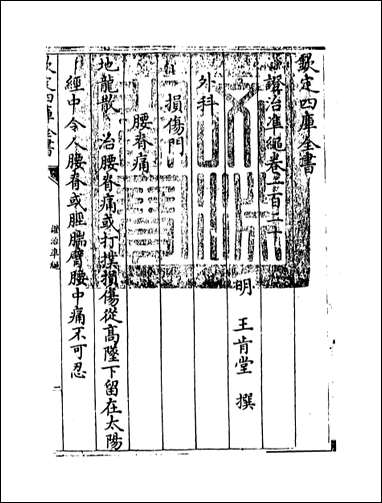 欽定四庫全書
證治準繩卷一百二十
明 王肯堂 撰
外科
損傷門
腰脊痛
地龍散 治腰脊痛或打撲損傷從髙墜下留在太陽
經中令人腰脊或脛腨臂腰中痛不可忍
欽定四庫全書
證治準繩
一